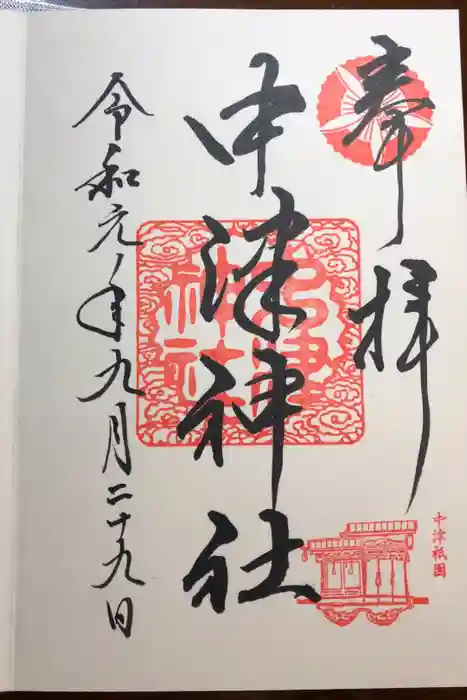 奉拝
中津祇園
中津神社
中津神社
令和元年九月二十九日